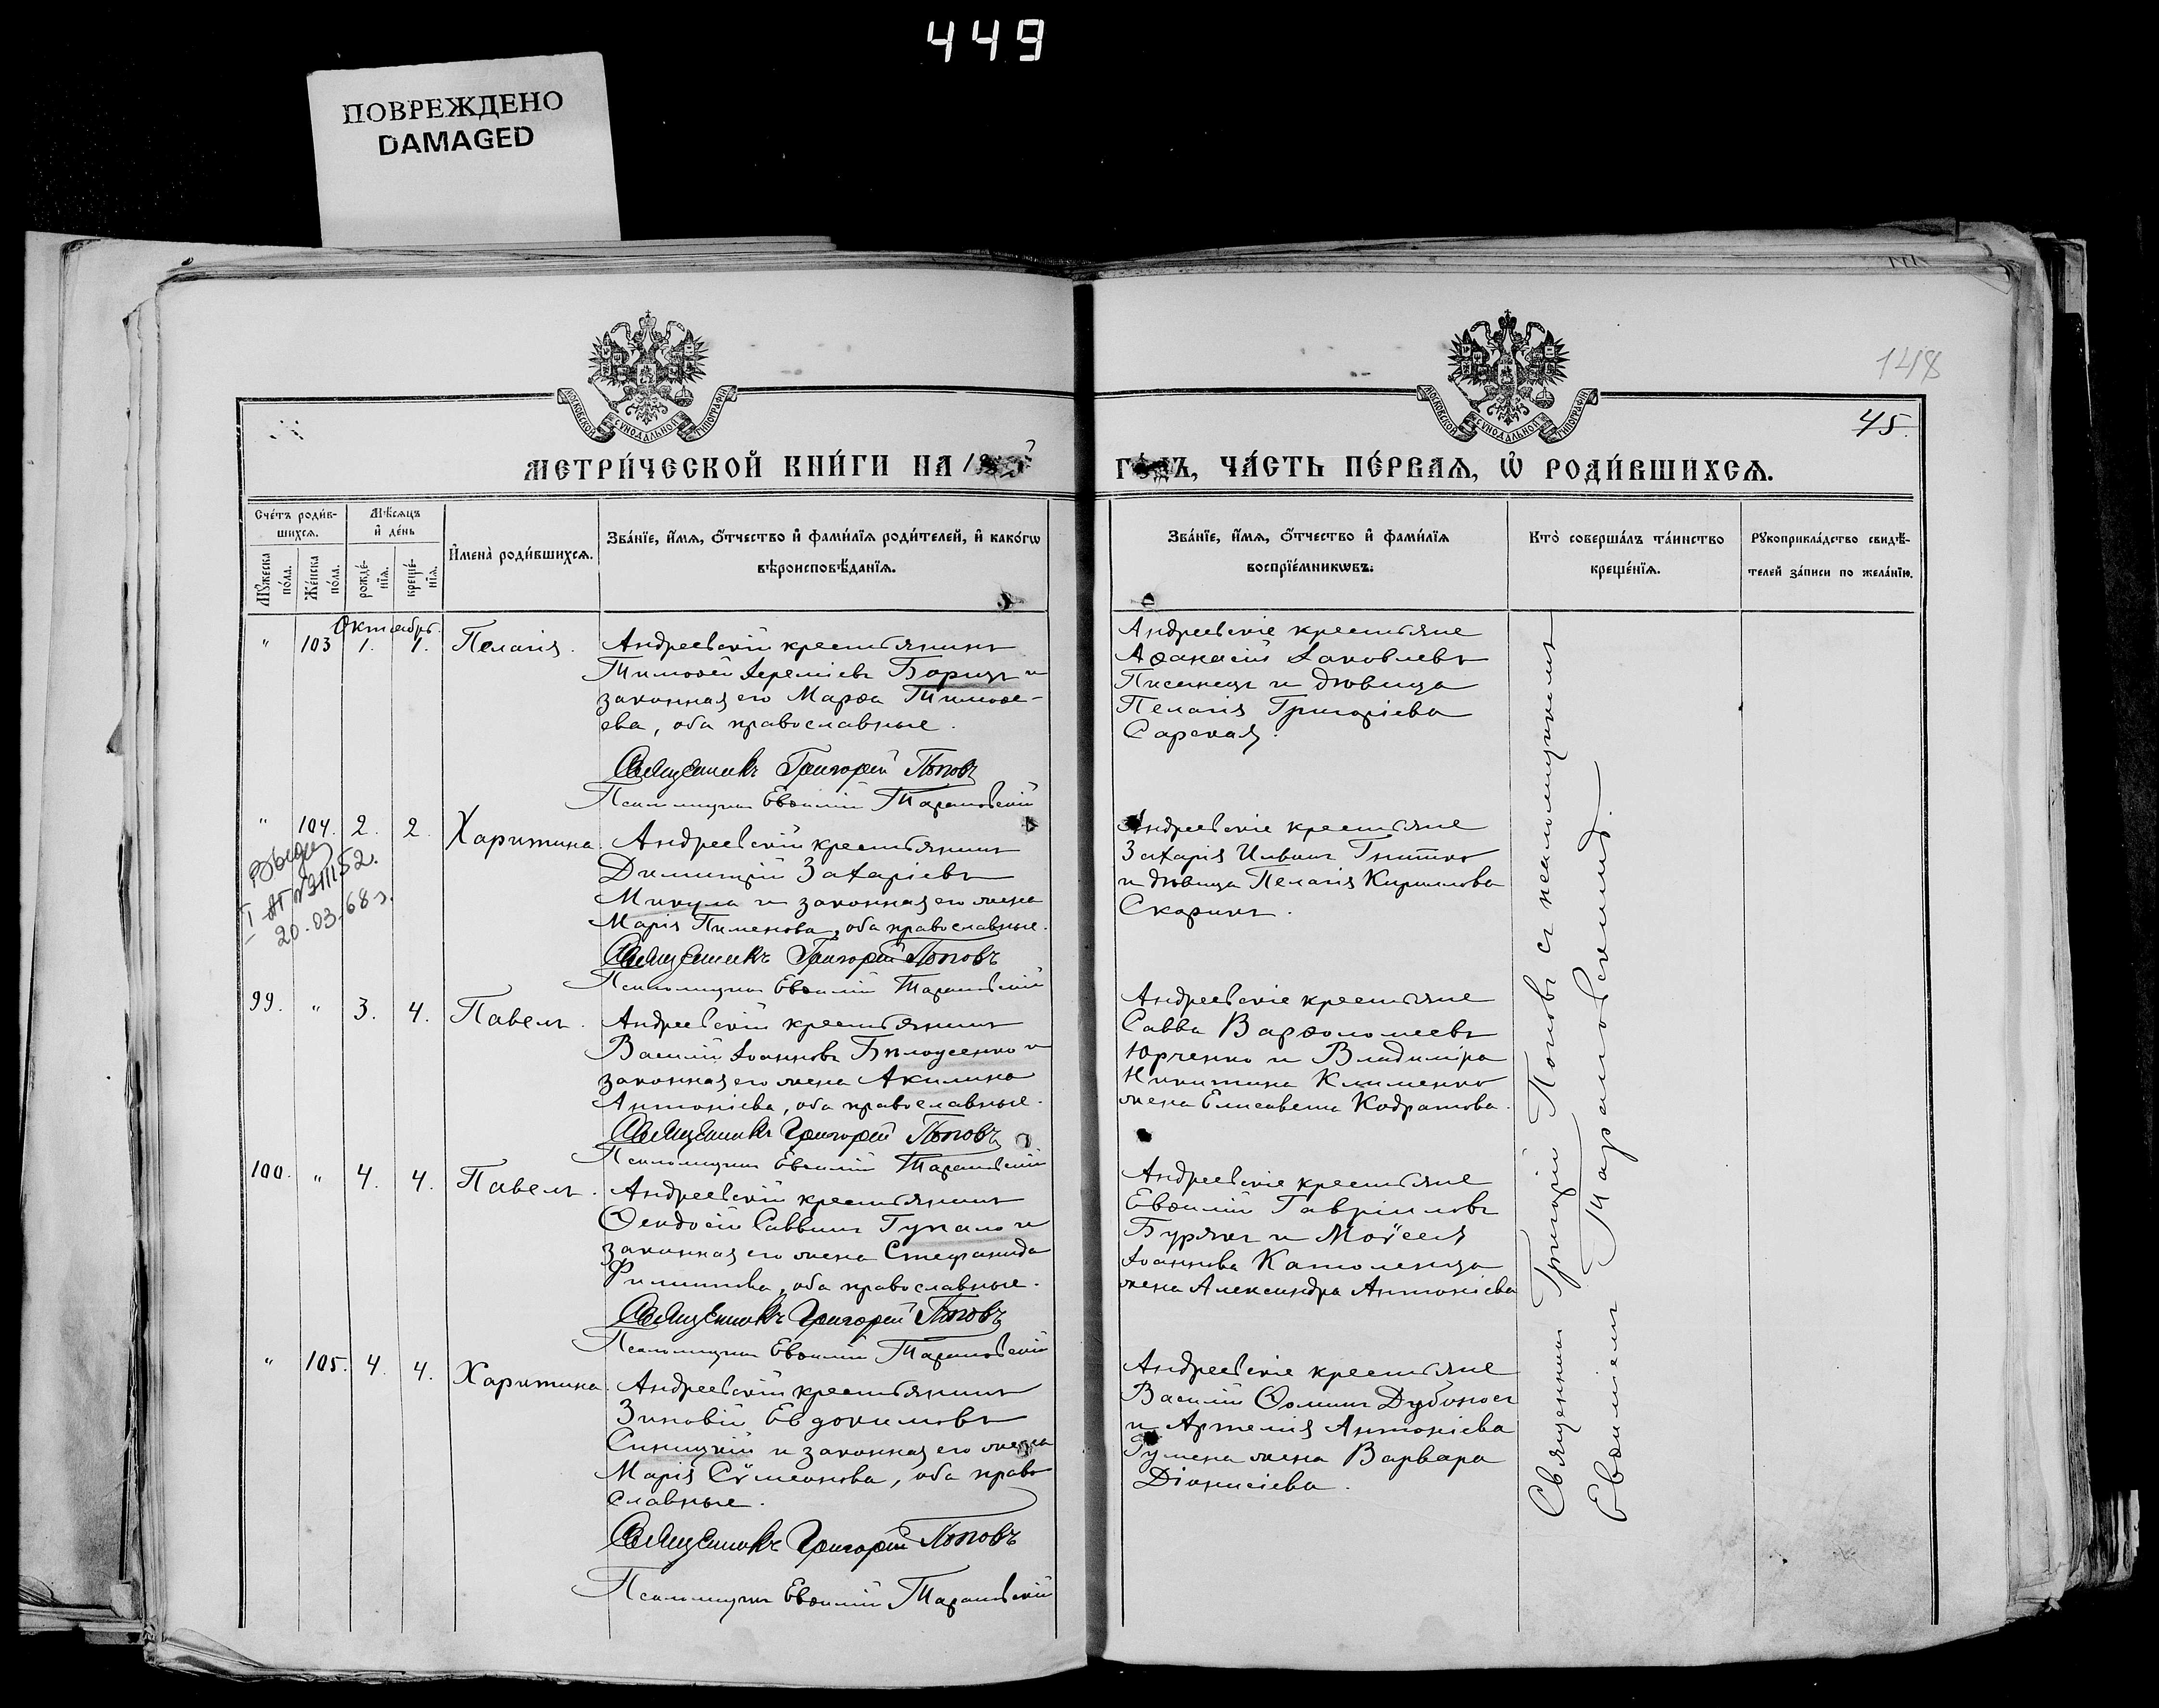 449
ПОВРЕЖДЕНО
DAMAGED
148
МОСКОВСКОЙ СѴНОДАЛЬНОЙ ТИПОГРАФІИ
МОСКОВСКОЙ СѴНОДАЛЬНОЙ ТИПОГРАФІИ
45.
МЕТРИ́ЧЕСКОЙ КНИ́ГИ НА 18
ГО́ДЪ, ЧА́СТЬ ПЕ́РВАѦ, Ѡ҆ РОДИ́ВШИХСѦ.
Сче́тъ роди́в-
шихсѧ.
Мѣ́сѧцъ
и҆ де́нь
Мꙋ́жеска
по́ла.
Же́нска
по́ла.
рожде́-
нїѧ.
креще́-
нїѧ.
И҆мена̀ роди́вшихсѧ.
Зва́нїе, и҆́мѧ, ѻ҆́тчество и҆ фами́лїѧ роди́телей, и҆ како́гѡ
вѣроисповѣ́данїѧ.
Зва́нїе, и҆́мѧ, ѻ҆́тчество и҆ фами́лїѧ
воспрїе́мникѡвъ.
Кто̀ соверша́лъ та́инство
креще́нїѧ.
Рꙋкоприкла́дство свидѣ́-
телей за́писи по жела́нїю.
Октябрь.
" 103 1. 1. Пелагія.
Андреевскій крестьянинъ
Тимоѳей Іереміевъ Борищ и
законная его Марѳа Тимоѳе-
ева, оба православные.
Священникъ Григорій Поповъ
Псаломщикъ Евѳимій Тарановскій
Андреевскіе крестьяне
Аѳанасій Іаковлевъ
Писанецъ и дѣвица
Пелагія Григоріева
Сарская.
" 104. 2. 2. Харитина.
I АГ №
20.03.68 г.
Андреевскій крестьянинъ
Димитрій Захаріевъ
Микула и законная его жена
Марія Пименова, оба православные.
Священникъ Григорій Поповъ
Псаломщикъ Евѳимій Тарановскій
Андреевскіе крестьяне
Захарія Ильинъ Гнитко
и дѣвица Пелагія Кириллова
Скорикъ.
99. " 3. 4. Павелъ.
Андреевскій крестьянинъ
Василій Іоанновъ Билоусенко и
законная его жена Акилина
Антоніева, оба православные.
Священникъ Григорій Поповъ
Псаломщикъ Евѳимій Тарановскій
Андреевскіе крестьяне
Савва Варѳоломеевъ
Юрченко и Владиміра
Никитина Клименко
жена Елисавета Кодратова.
100. " 4. 4. Павелъ.
Андреевскій крестьянинъ
Ѳеодосій Саввинъ Гупало и
законная его жена Стефанида
Филиппова, оба православные.
Священникъ Григорій Поповъ
Псаломщикъ Евѳимій Тарановскій
Андреевскіе крестьяне
Евѳимій Гавріиловъ
Бурякъ и Моѵсея
Іоаннова Католенца
жена Александра Антоніева
" 105. 4. 4. Харитина.
Андреевскій крестьянинъ
Зиновій Евдокимовъ
Синицкій и законная его жена
Марія Сѵмеонова, оба право
славные.
Священникъ Григорій Поповъ
Псаломщикъ Евѳимій Тарановскій
Андреевскіе крестьяне
Василій Ѳоминъ Дубоносъ
и Артемія Антоніева
Гумена жена Варвара
Діонисіева.
Священникъ Григорій Поповъ съ псаломщикомъ
Евѳиміемъ Тарановскимъ.